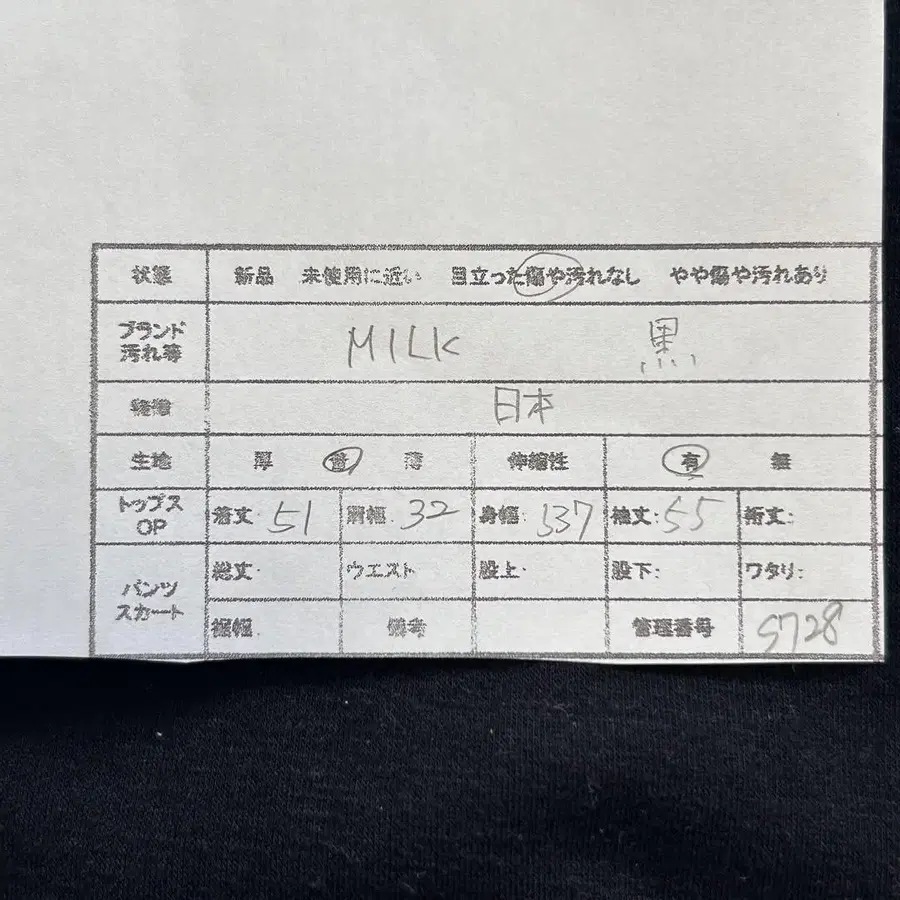 状態 新品 未使用に近い 目立った傷や汚れなし やや傷や汚れあり
ブランド
汚れ等 MILK 黒
日本
生地 厚 普 薄 伸縮性 有 無
トップス
OP 着丈: 51 肩幅: 32 身幅: 337 袖丈: 55 裄丈:
パンツ
スカート 総丈: ウエスト 股上: 股下: ワタリ:
裾幅: 備考 管理番号 S728